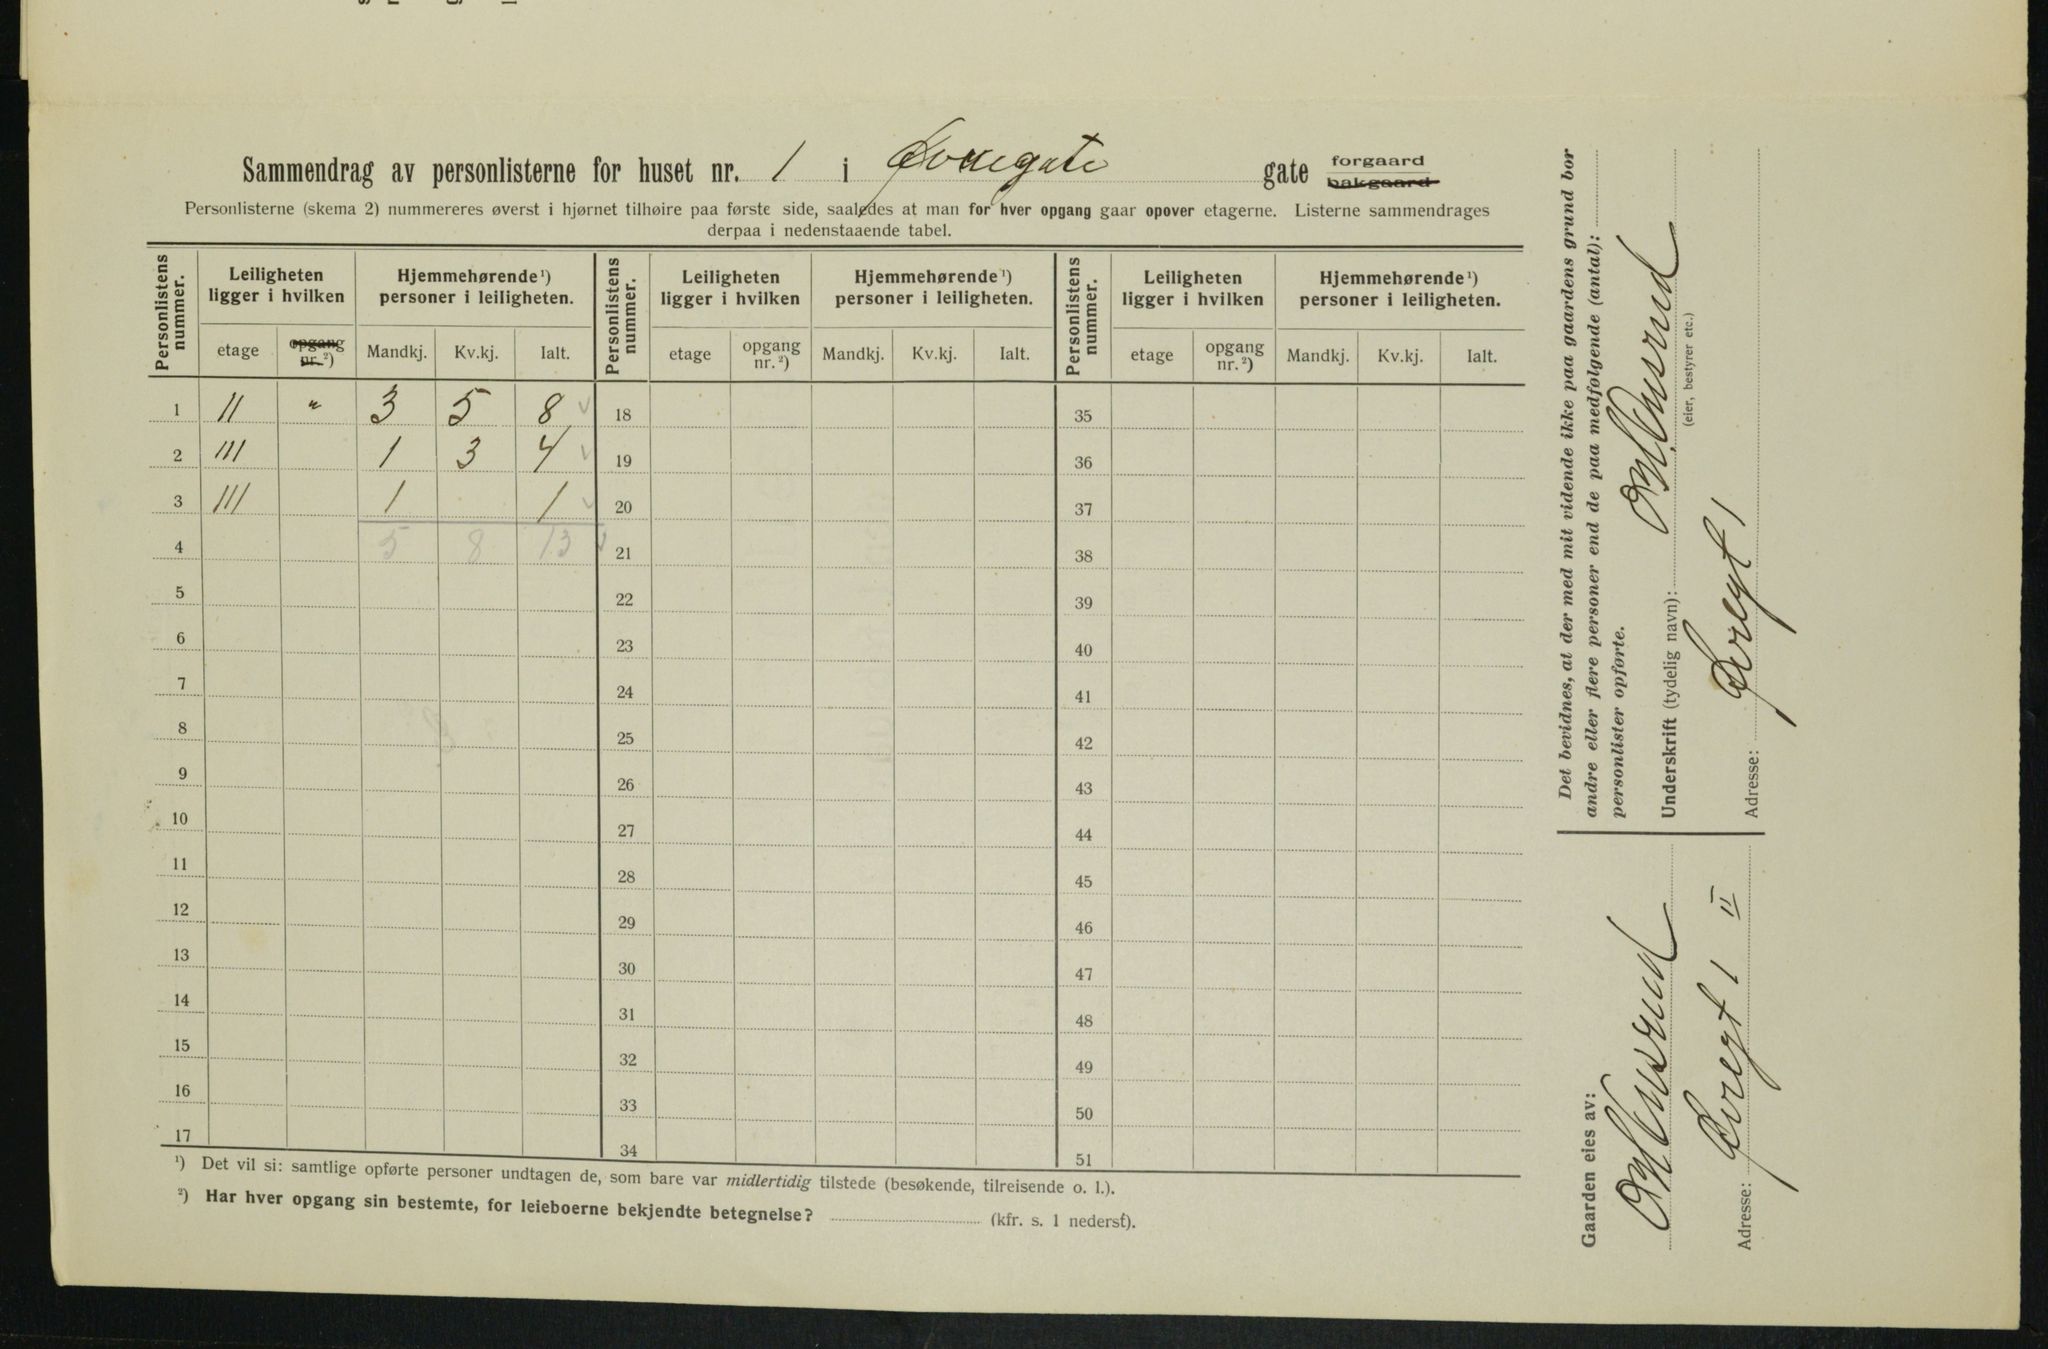 Sammendrag av personlisterne for huset nr. 1 i Øvregate gate forgaard bakgaard
Personlisterne (skema 2) nummereres øverst i hjørnet tilhøire paa første side, saaledes at man for hver opgang gaar opover etagerne. Listerne sammendrages
derpaa i nedenstaaende tabel.
Personlistens nummer. Leiligheten ligger i hvilken Hjemmehørende ¹) personer i leiligheten. Personlistens nummer. Leiligheten ligger i hvilken Hjemmehørende ¹) personer i leiligheten. Personlistens nummer. Leiligheten ligger i hvilken Hjemmehørende ¹) personer i leiligheten.
etage opgang nr. ²) Mandkj. Kv.kj. Ialt. etage opgang nr. ²) Mandkj. Kv.kj. Ialt. etage opgang nr. ²) Mandkj. Kv.kj. Ialt.
1 II " 3 5 8 18 35
2 III 1 3 4 19 36
3 III 1 1 20 37
4 5 8 13 21 38
5 22 39
6 23 40
7 24 41
8 25 42
9 26 43
10 27 44
11 28 45
12 29 46
13 30 47
14 31 48
15 32 49
16 33 50
17 34 51
¹) Det vil si: samtlige opførte personer undtagen de, som bare var midlertidig tilstede (besøkende, tilreisende o. l.).
²) Har hver opgang sin bestemte, for leieboerne bekjendte betegnelse? (kfr. s. 1 nederst).
Det bevidnes, at der med mit vidende ikke paa gaardens grund bor
andre eller flere personer end de paa medfølgende (antal):
personlister opførte.
Underskrift (tydelig navn):
(eier, bestyrer etc.)
Adresse: Øvregt 1
Gaarden eies av:
Adresse: Øvregt 1 II